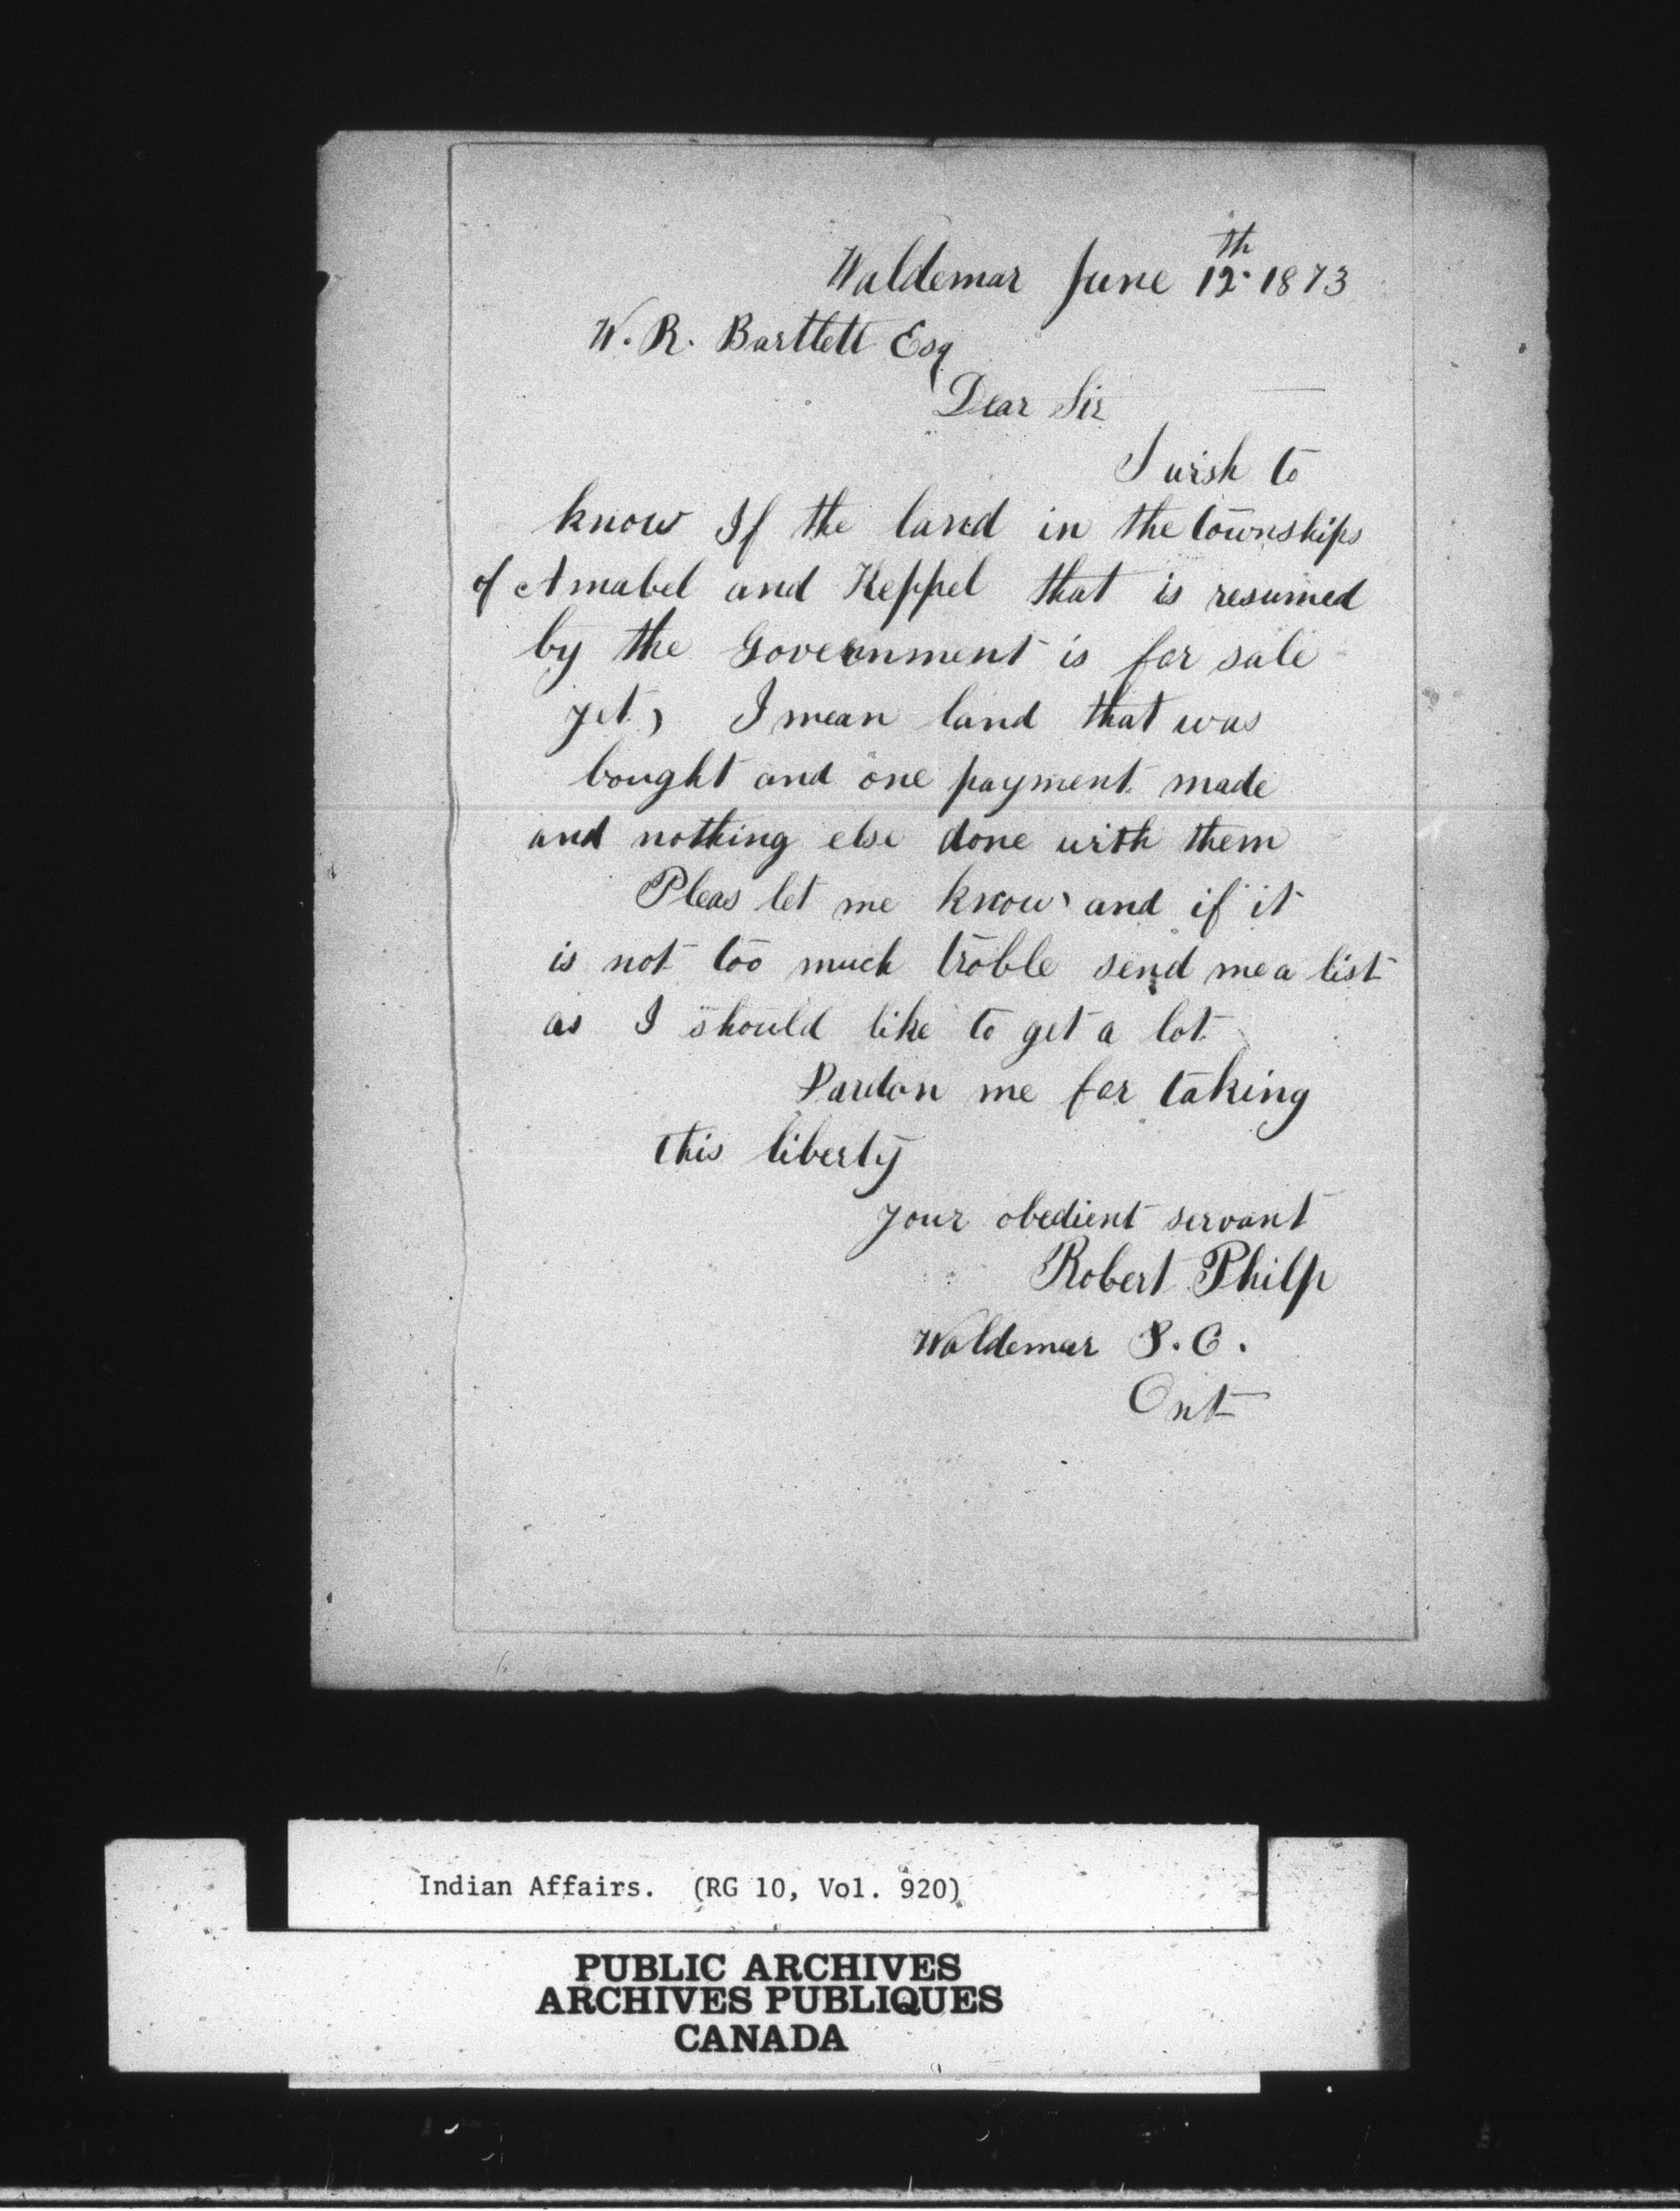 Waldemar June 12th 1873
W. R. Bartlett Esq
Dear Sir
I wish to
know If the land in the townships
of Amabel and Keppel that is resumed
by the Government is for sale
yet, I mean land that was
bought and one payment made
and nothing else done with them
Pleas let me know and if it
is not too much troble send me a list
as I should like to get a lot
Pardon me for taking
this liberty
your obedient servant
Robert Philp
Waldemar P.O.
Ont
Indian Affairs. (RG 10, Vol. 920)
PUBLIC ARCHIVES
ARCHIVES PUBLIQUES
CANADA